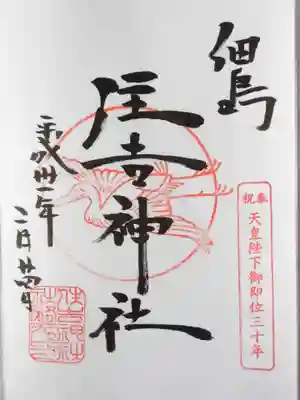 佃島
奉祝 天皇陛下御即位三十年
住吉神社
平成卅一年
二月廿四日